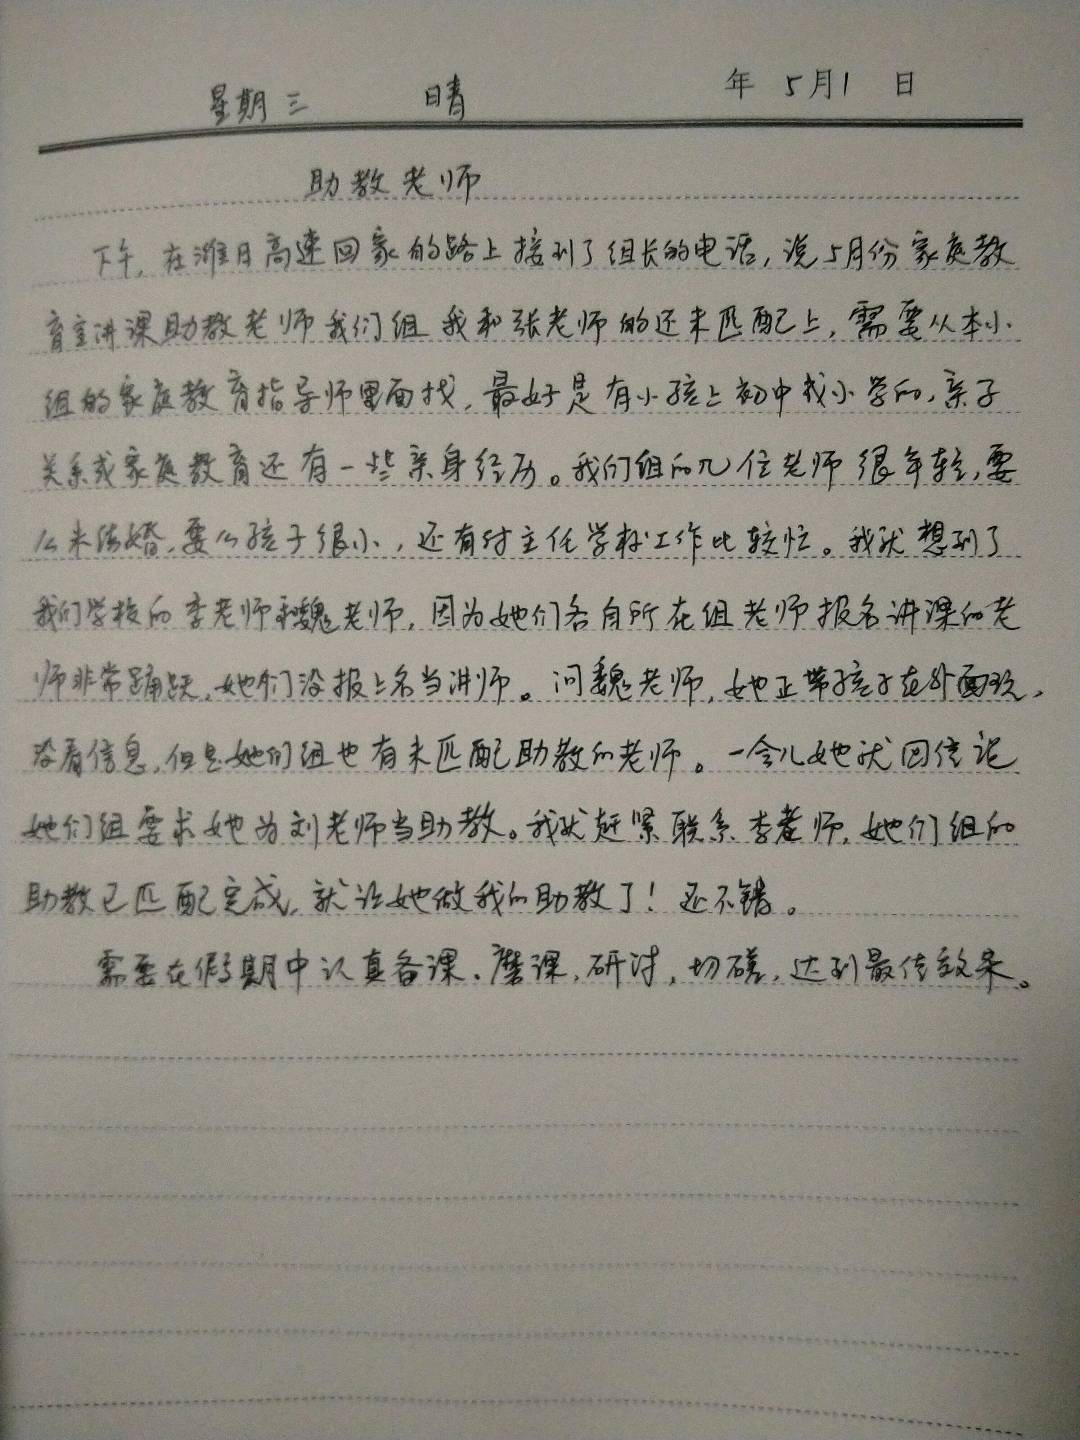 星期三 晴 年 5月1 日
助教老师
下午,在潍日高速回家的路上接到了组长的电话,说5月份家庭教
育主讲课助教老师我们组我和张老师的还未匹配上,需要从本小
组的家庭教育指导师里面找,最好是有小孩上初中或小学的,亲子
关系或家庭教育还有一些亲身经历。我们组的几位老师很年轻,要
么未结婚,要么孩子很小,还有付主任学校工作比较忙。我就想到了
我们学校的李老师和魏老师,因为她们各自所在组老师报名讲课的老
师非常踊跃,她们没报上名当讲师。问魏老师,她正带孩子在外面玩,
没看信息,但是她们组也有未匹配助教的老师。一会儿她就回信说
她们组要求她为刘老师当助教。我就赶紧联系李老师,她们组的
助教已匹配完成,就让她做我的助教了!还不错。
需要在假期中认真备课、磨课,研讨,切磋,达到最佳效果。